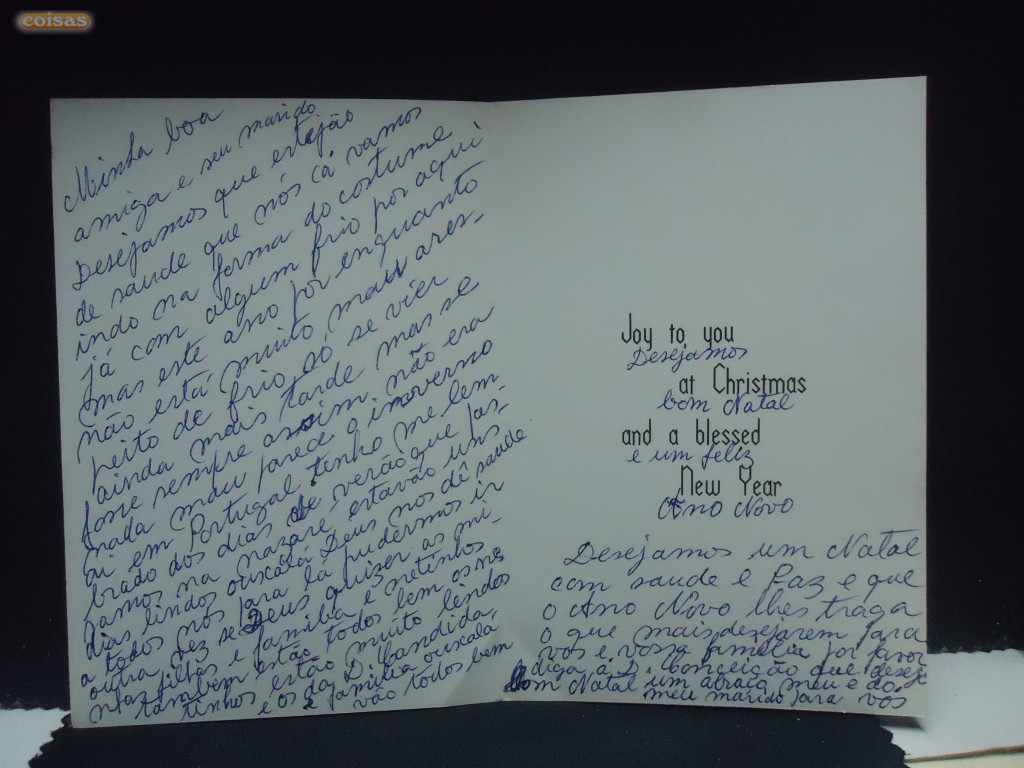 coisas
Minha boa
amiga e seu marido
Desejamos que estejão
de saude que nós cá vamos
indo na forma do costume
já com algum frio por aqui
mas este ano por enquanto
não está muito mau ares-
peito de frio só se vier
ainda mais tarde mas se
fosse sempre assim não era
nada mau parece o inoverno
ai em Portugal tenho me lem-
brado dos dias de verão que pas-
samos na nazare estavão uns
dias lindos ouscalá Deus nos dê saude
a todos nós para lá pudermos ir
outra vez se Deus quizer as mi-
nhas filhas e familha e netinhos
tambem estão todos bem os ne-
tinhos estão muito lindos
e os da D. Candida
e familia ouscalá
vão todos bem
Joy to you
Desejamos
at Christmas
bom Natal
and a blessed
e um feliz
New Year
Ano Novo
Desejamos um Natal
com saude e Paz e que
o Ano Novo lhes traga
o que mais dezejarem para
vós e vossa familia por favor
diga á D. Conceição que desejo
bom Natal um abraço meu e do
meu marido para vós